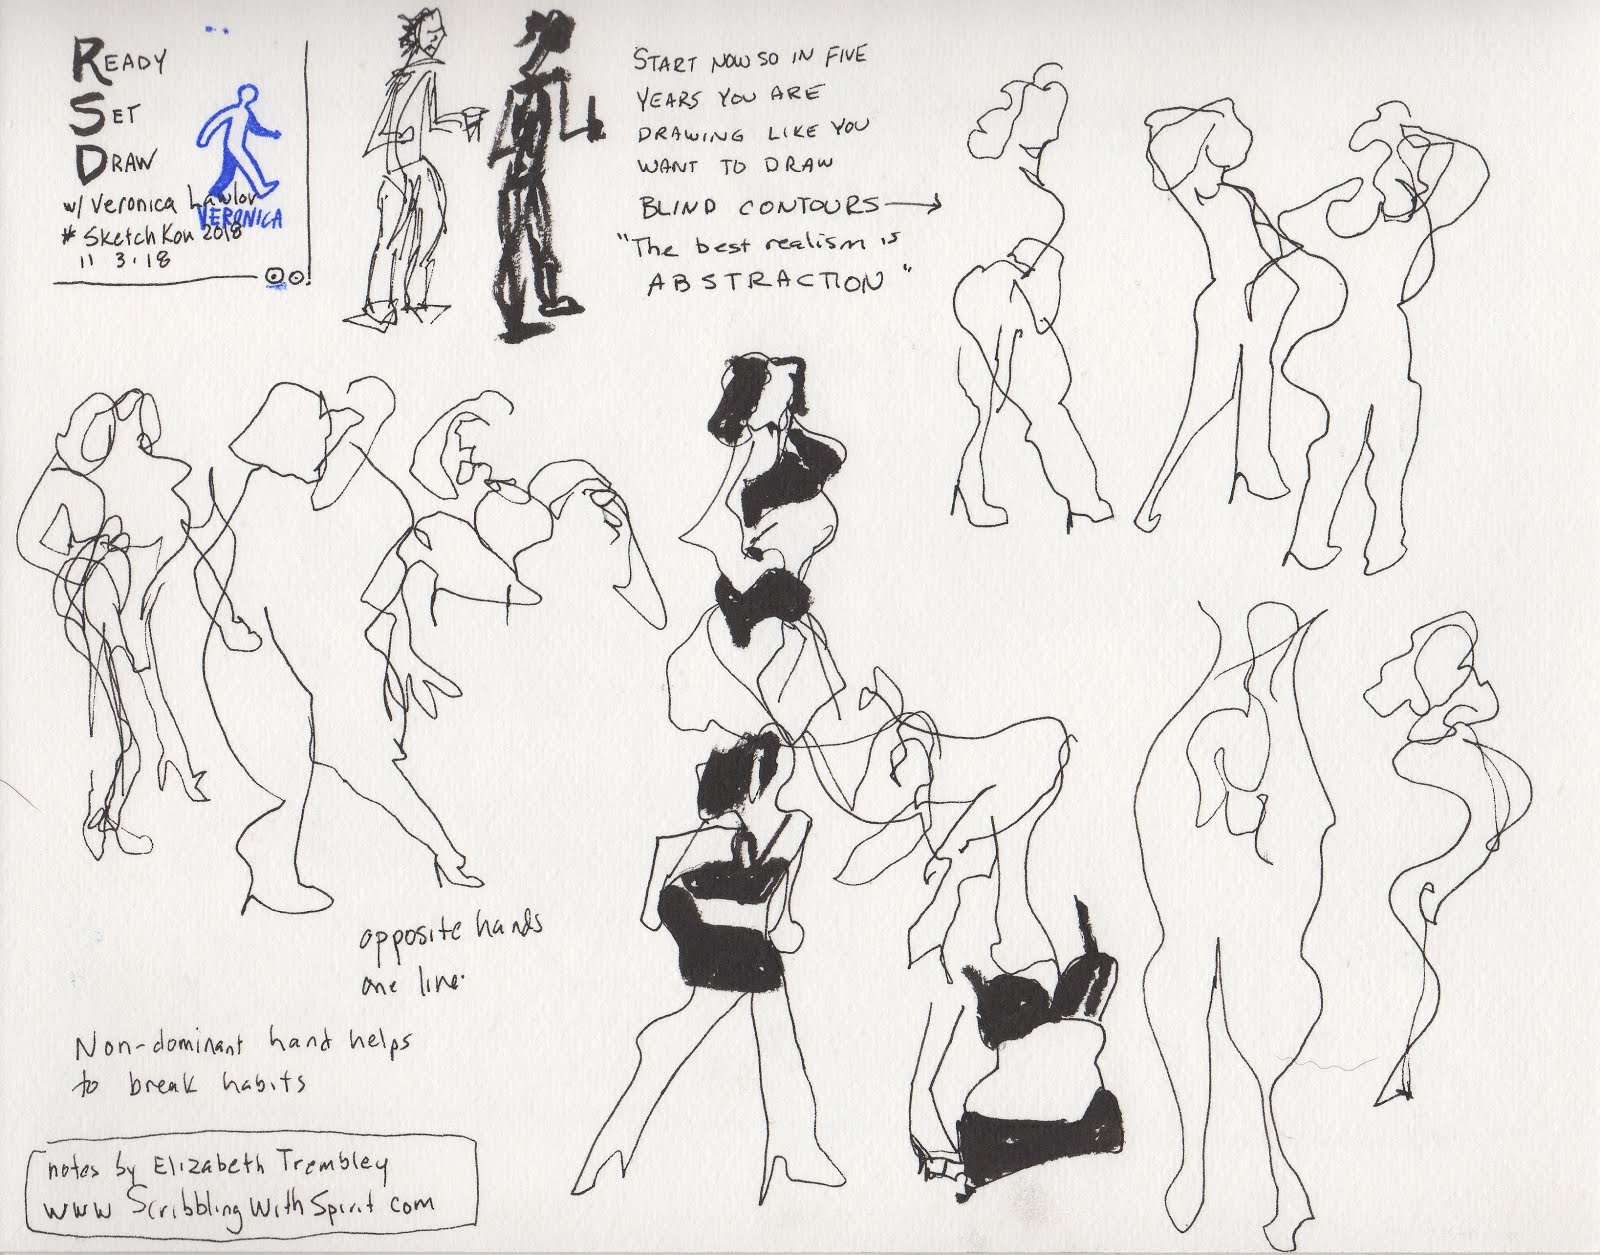 READY
SET
DRAW
w/ Veronica Lawlor
VERONICA
# SketchKon 2018
11 3.18
START NOW SO IN FIVE
YEARS YOU ARE
DRAWING LIKE YOU
WANT TO DRAW
BLIND CONTOURS →
"The best realism is
ABSTRACTION"
opposite hands
one line.
Non-dominant hand helps
to break habits
notes by Elizabeth Trembley
www ScribblingWithSpirit com